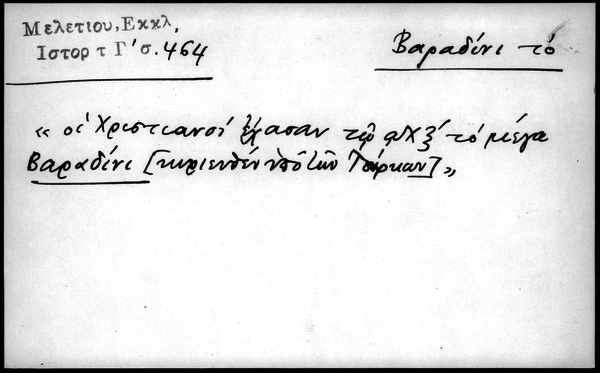 Μελετίου, Εκκλ,
Ιστορ τ Γ' σ. 464
Βαραδίνι τό
« οἱ Χριστιανοί ἔχασαν τῷ αΧξ' τό μέγα
Βαραδίνι [κυριευθέν ὑπό τῶν Τούρκων] »